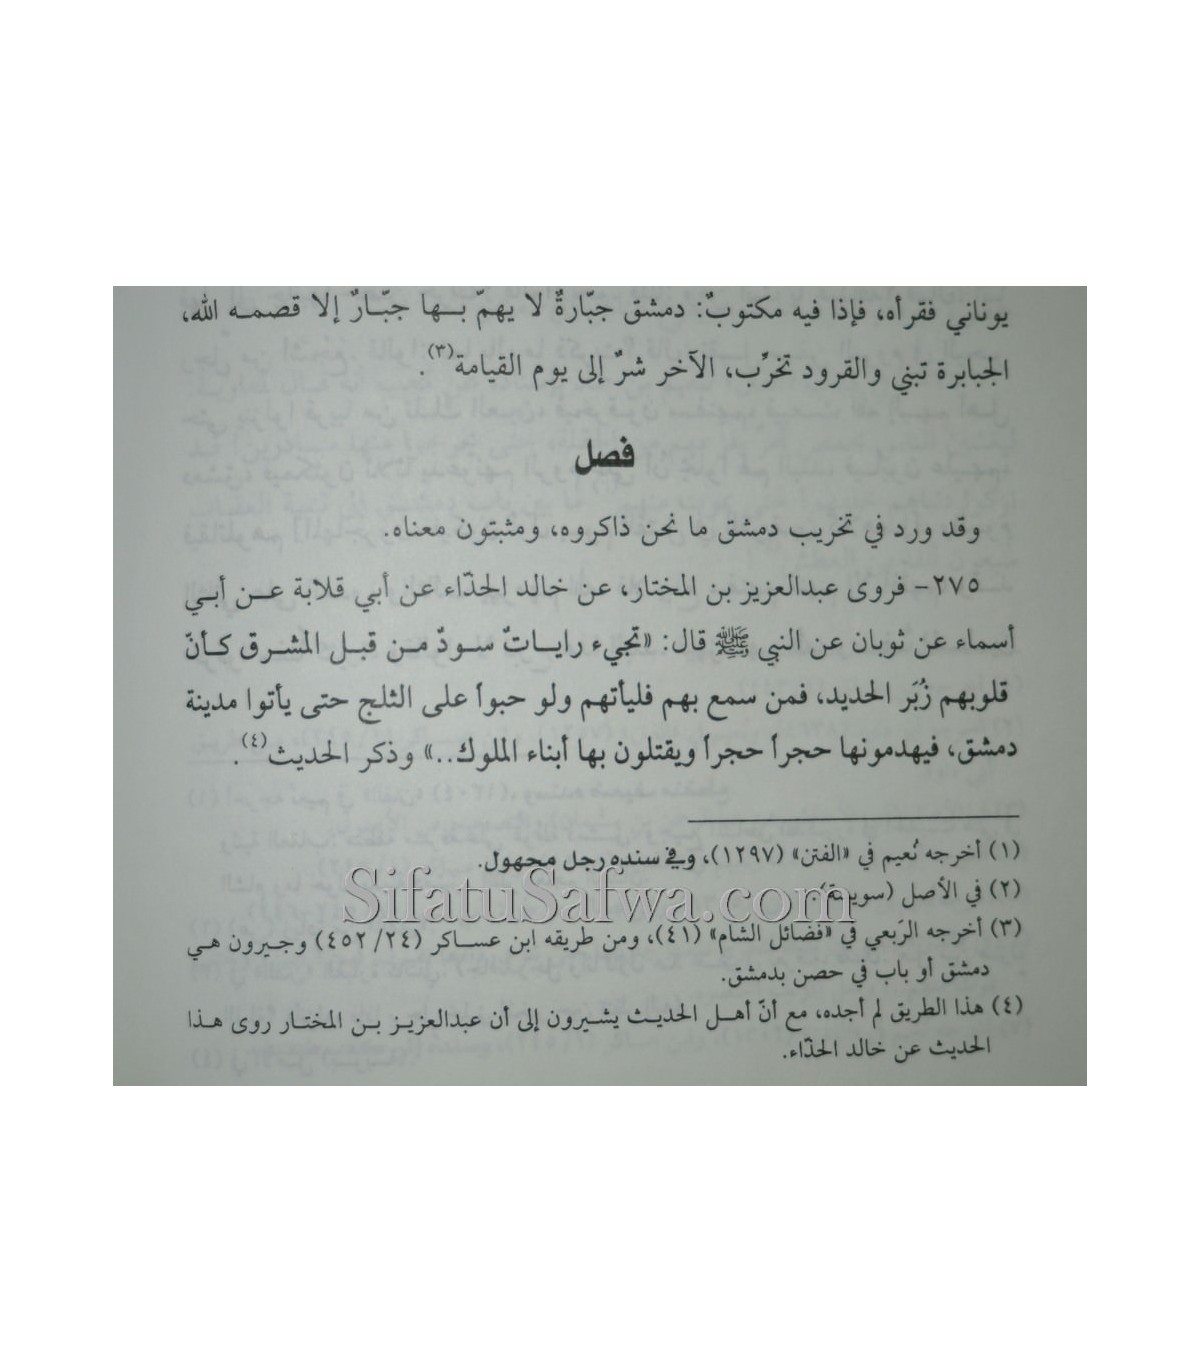 يوناني فقرأه، فإذا فيه مكتوبٌ: دمشق جبّارةٌ لا يهمّ بـها جبّـارٌ إلا قصمـه الله،
الجبابرة تبني والقرود تخرِّب، الآخر شرٌ إلى يوم القيامة(٣).
فصل
وقد ورد في تخريب دمشق ما نحن ذاكروه، ومثبتون معناه.
٢٧٥- فروى عبدالعزيز بن المختار، عن خالد الحذّاء عن أبي قلابة عـن أبـي
أسماء عن ثوبان عن النبي ﷺ قال: «تجيء رايـاتٌ سـودٌ مـن قبـل المشـرق كـأنّ
قلوبهم زُبَر الحديد، فمن سمع بهم فليأتهم ولو حبواً على الثلج حتى يأتوا مدينة
دمشق، فيهدمونها حجراً حجراً ويقتلون بها أبناء الملوك..» وذكر الحديث(٤).
(١) أخرجه نُعيم في «الفتن» (١٢٩٧)، وفي سنده رجل مجهول.
(٢) في الأصل
SifatuSafwa.com
(٣) أخرجه الرَبعي في «فضائل الشام» (٤١)، ومن طريقه ابن عسـاكر (٢٤/ ٤٥٢) وجـيرون هـي
دمشق أو باب في حصن بدمشق.
(٤) هذا الطريق لم أجده، مع أنّ أهـل الحديـث يشـيرون إلى أن عبدالعزيـز بـن المختـار روى هـذا
الحديث عن خالد الحذّاء.